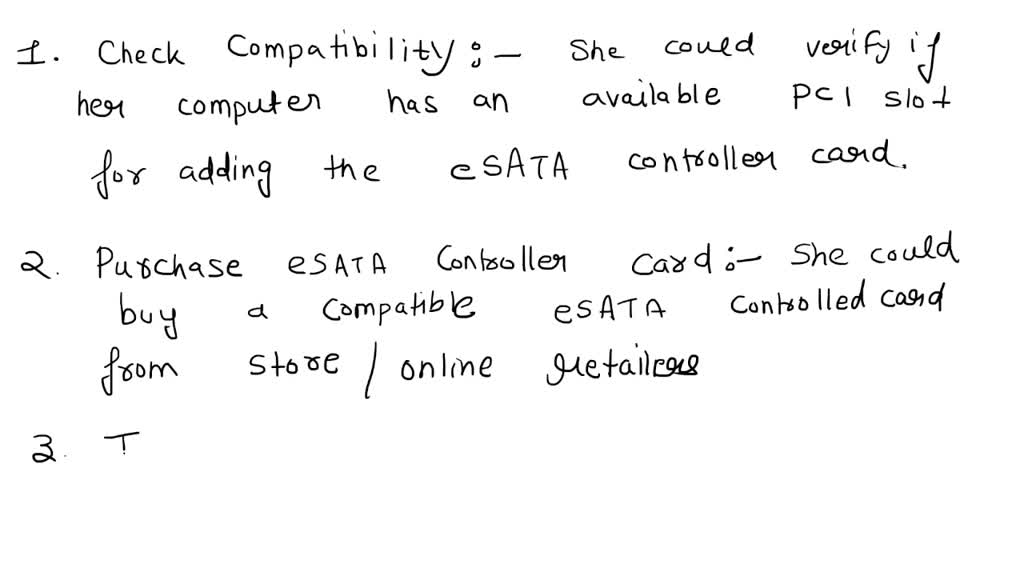 1. Check Compatibility :- She could verify if
her computer has an available PCI slot
for adding the eSATA controller card.
2. Purchase eSATA Controller Card :- She could
buy a compatible eSATA controlled card
from store / online retailers
3. T